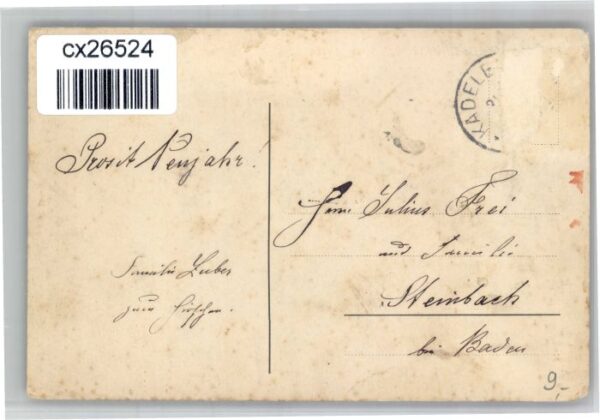 cx26524
KADELB
Prosit Neujahr!
Herrn Julius Frei
und Familie
Familie Huber
Steinbach
zum Hirschen.
bei Baden
9,-